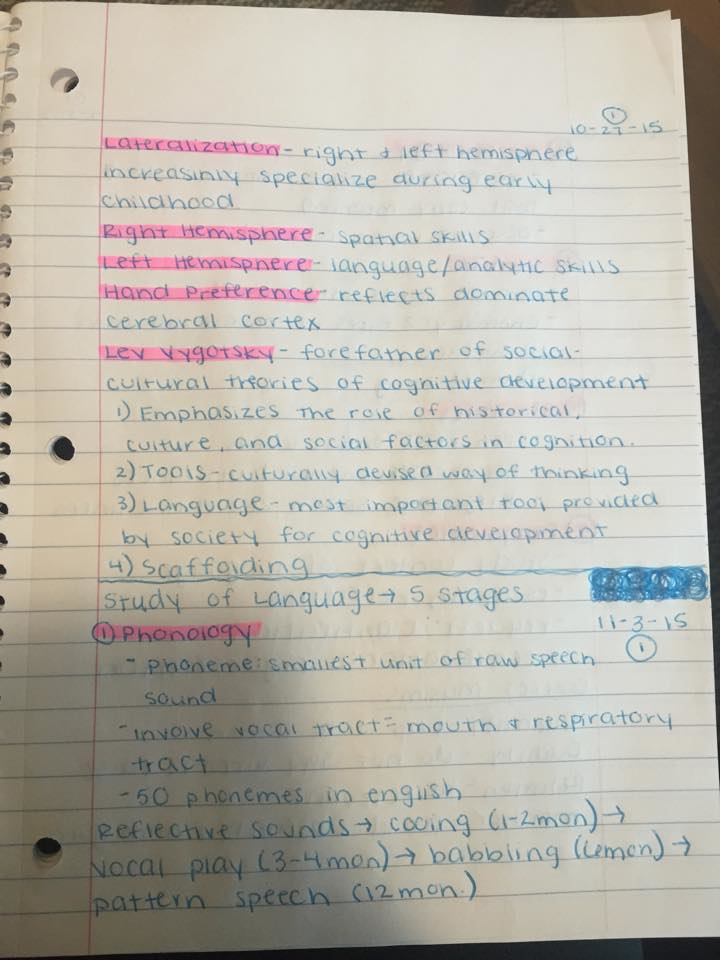 ①
10-27-15
Lateralization - right & left hemisphere
increasinly specialize during early
childhood
Right Hemisphere - spatial skills
Left Hemisphere - language/analytic skills
Hand Preference - reflects dominate
cerebral cortex
Lev Vygotsky - forefather of social-
cultural theories of cognitive development
1) Emphasizes the role of historical,
culture, and social factors in cognition.
2) Tools - culturally devised way of thinking
3) Language - most important tool provided
by society for cognitive development
4) Scaffolding
Study of Language → 5 stages
11-3-15
①
① Phonology
- phoneme: smallest unit of raw speech
sound
- involve vocal tract = mouth & respiratory
tract
- 50 phonemes in english
Reflective sounds → cooing (1-2mon) →
vocal play (3-4mon) → babbling (6mon) →
pattern speech (12mon.)